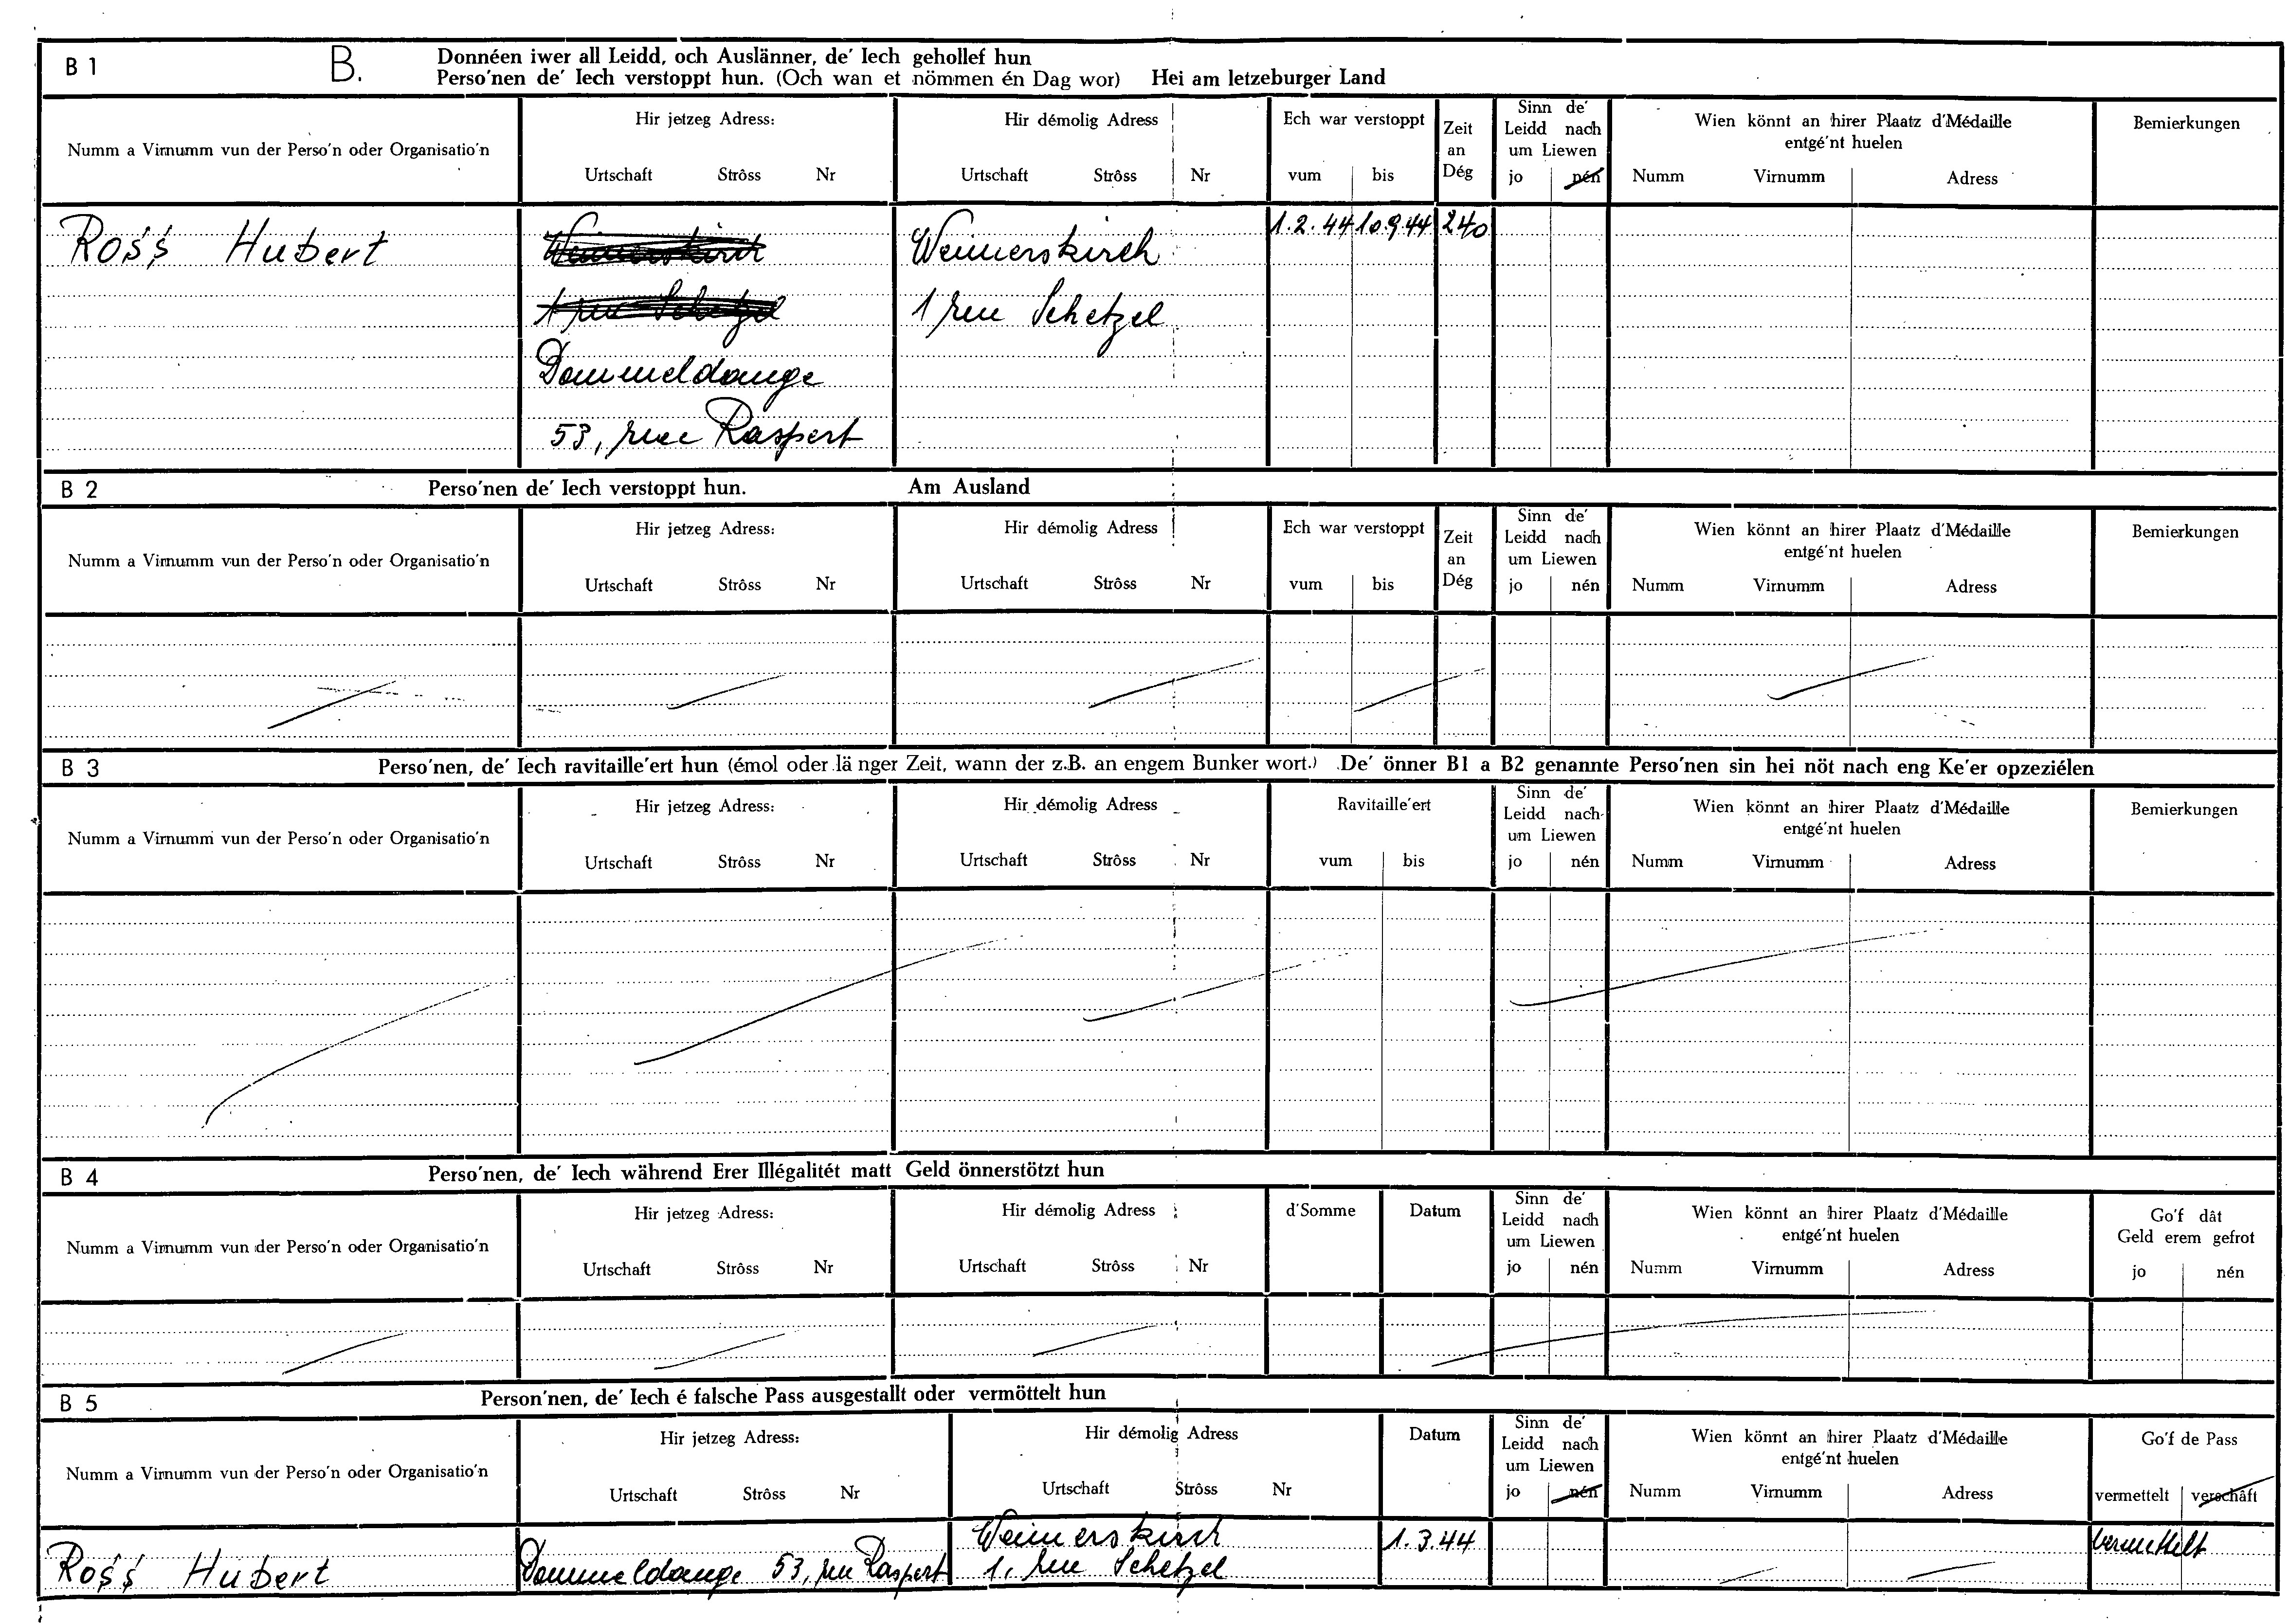 B 1
B.
Donnéen iwer all Leidd, och Auslänner, de' Iech gehollef hun
Perso'nen de' Iech verstoppt hun. (Och wan et nömmen én Dag wor) Hei am letzeburger Land
Numm a Virnumm vun der Perso'n oder Organisatio'n
Hir jetzeg Adress:
Urtschaft Strôss Nr
Hir démolig Adress
Urtschaft Strôss Nr
Ech war verstoppt
vum bis
Zeit
an
Dég
Sinn de'
Leidd nach
um Liewen
jo nén
Wien könnt an hirer Plaatz d'Médaille
entgé'nt huelen
Numm Virnumm Adress
Bemierkungen
Ross Hubert
Weimerskirch
1 rue Schetzel
Dommeldange
53, rue Raspert
Weimerskirch
1 rue Schetzel
1.2.44 10.9.44 240
B 2
Perso'nen de' Iech verstoppt hun. Am Ausland
Numm a Virnumm vun der Perso'n oder Organisatio'n
Hir jetzeg Adress:
Urtschaft Strôss Nr
Hir démolig Adress
Urtschaft Strôss Nr
Ech war verstoppt
vum bis
Zeit
an
Dég
Sinn de'
Leidd nach
um Liewen
jo nén
Wien könnt an hirer Plaatz d'Médaille
entgé'nt huelen
Numm Virnumm Adress
Bemierkungen
B 3
Perso'nen, de' Iech ravitaille'ert hun (émol oder länger Zeit, wann der z.B. an engem Bunker wort.) De' önner B1 a B2 genannte Perso'nen sin hei nöt nach eng Ke'er opzeziélen
Numm a Virnumm vun der Perso'n oder Organisatio'n
Hir jetzeg Adress:
Urtschaft Strôss Nr
Hir démolig Adress
Urtschaft Strôss Nr
Ravitaille'ert
vum bis
Sinn de'
Leidd nach
um Liewen
jo nén
Wien könnt an hirer Plaatz d'Médaille
entgé'nt huelen
Numm Virnumm Adress
Bemierkungen
B 4
Perso'nen, de' Iech während Erer Illégalitét matt Geld önnerstötzt hun
Numm a Virnumm vun der Perso'n oder Organisatio'n
Hir jetzeg Adress:
Urtschaft Strôss Nr
Hir démolig Adress
Urtschaft Strôss Nr
d'Somme
Datum
Sinn de'
Leidd nach
um Liewen
jo nén
Wien könnt an hirer Plaatz d'Médaille
entgé'nt huelen
Numm Virnumm Adress
Go'f dât
Geld erem gefrot
jo nén
B 5
Person'nen, de' Iech é falsche Pass ausgestallt oder vermöttelt hun
Numm a Virnumm vun der Perso'n oder Organisatio'n
Hir jetzeg Adress:
Urtschaft Strôss Nr
Hir démolig Adress
Urtschaft Strôss Nr
Datum
Sinn de'
Leidd nach
um Liewen
jo nén
Wien könnt an hirer Plaatz d'Médaille
entgé'nt huelen
Numm Virnumm Adress
Go'f de Pass
vermettelt verschâft
Ross Hubert
Dommeldange 53, rue Raspert
Weimerskirch
1, rue Schetzel
1.3.44
vermettelt